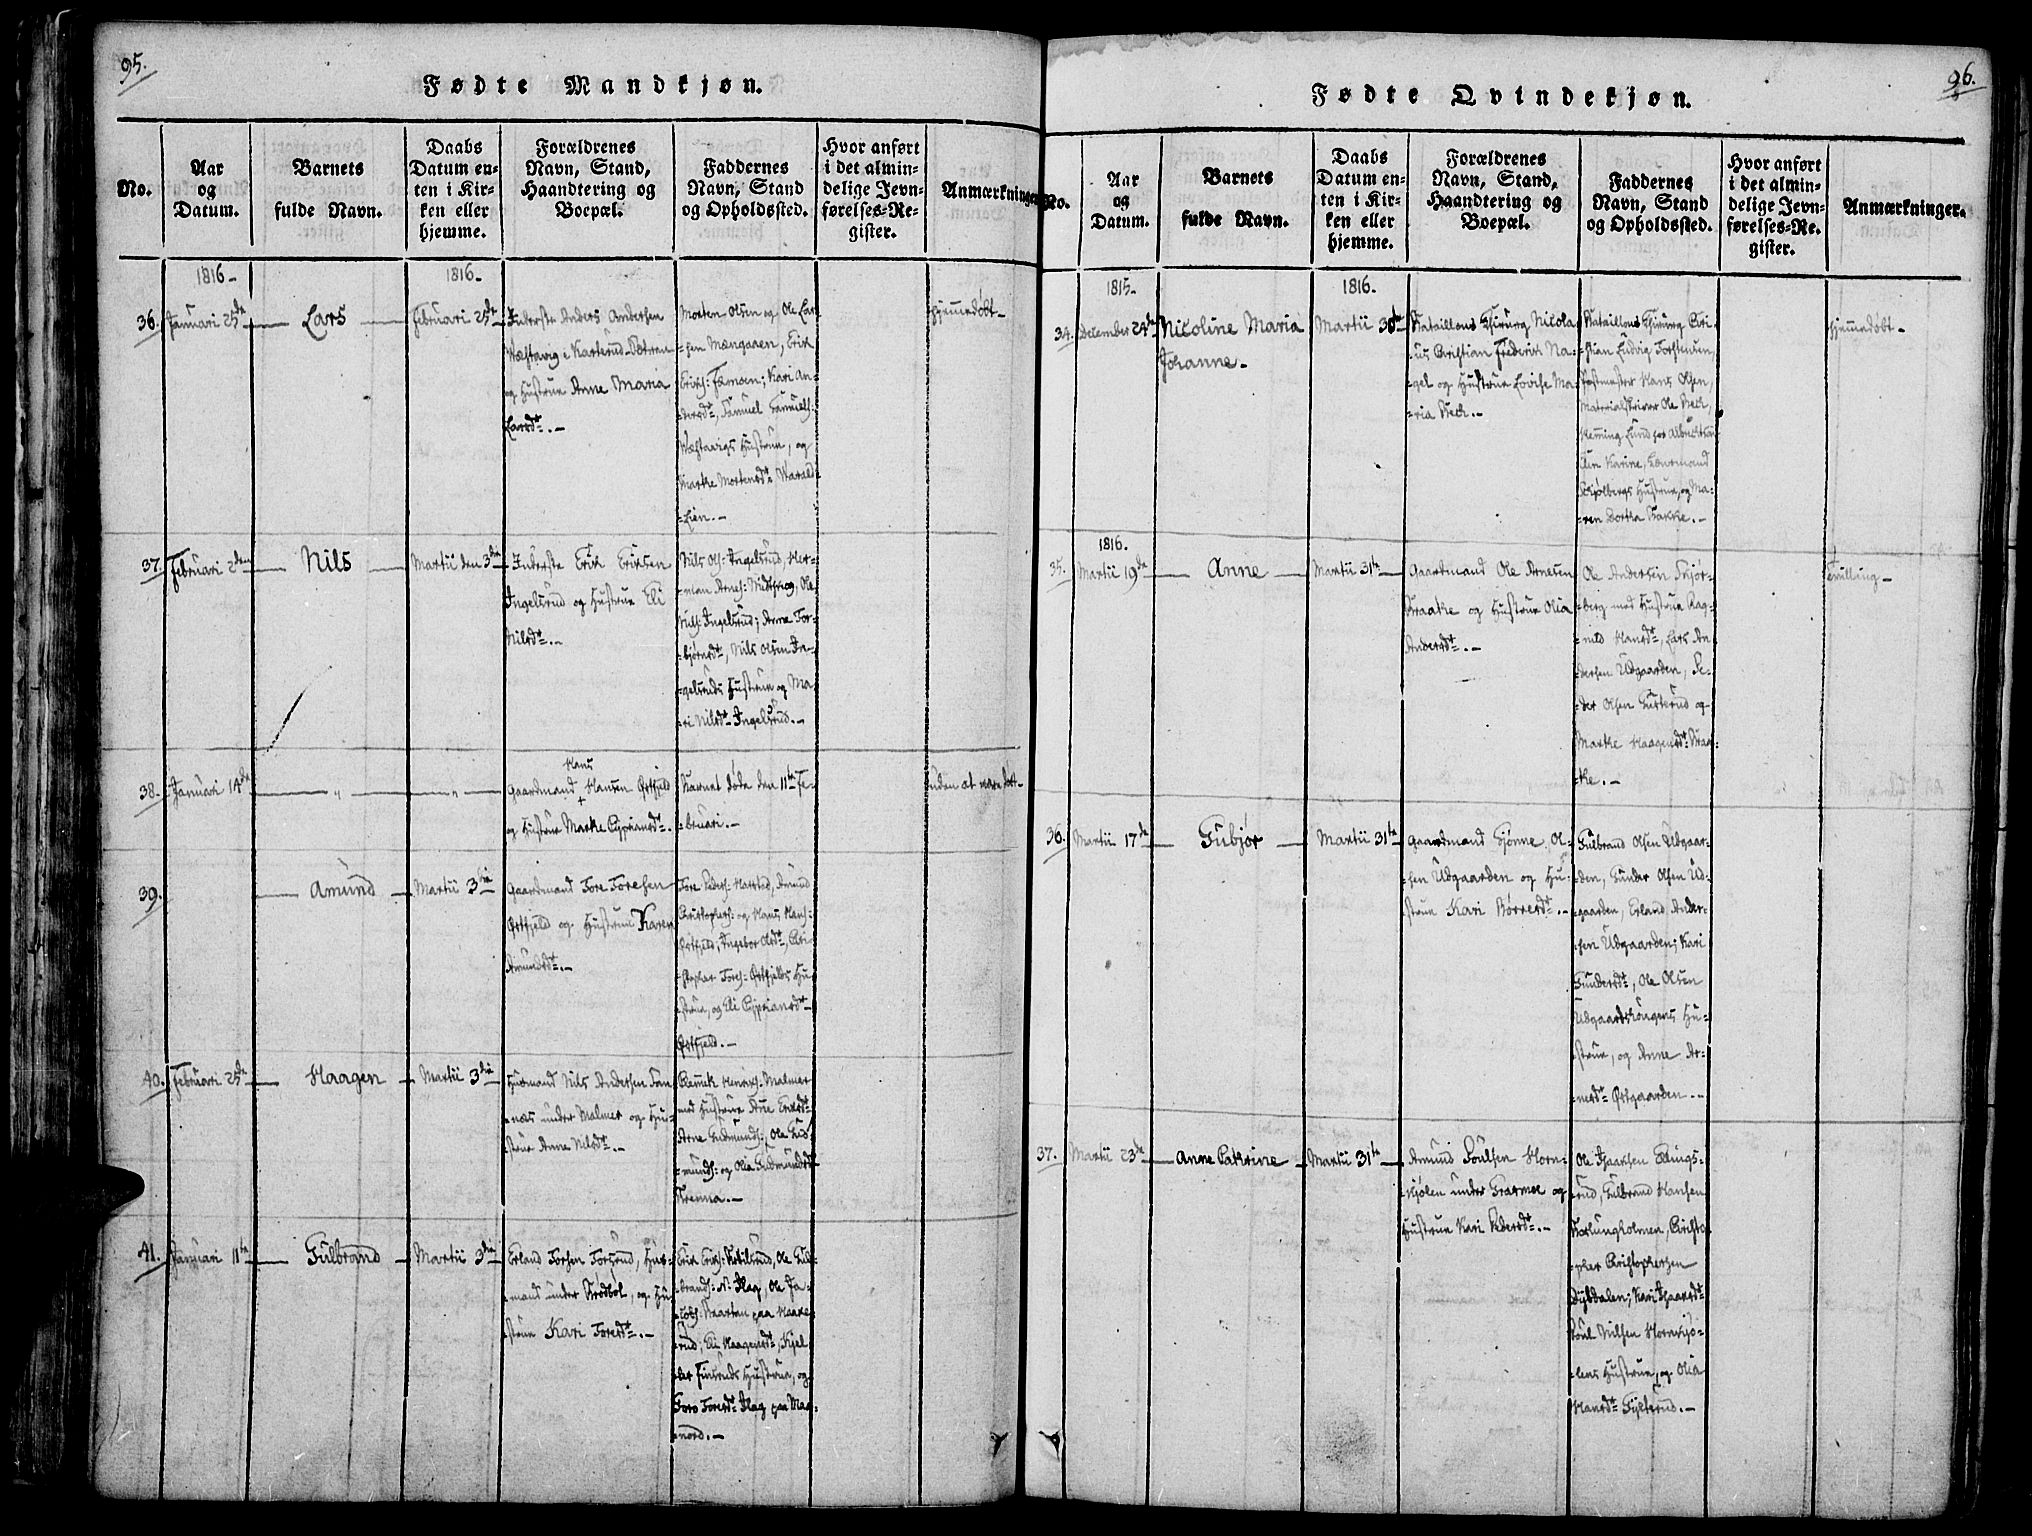 95.
Fødte Mandkjøn.
No.
Aar
og
Datum.
Barnets
fulde Navn.
Daabs
Datum en-
ten i Kir-
ken eller
hjemme.
Forældrenes
Navn, Stand,
Haandtering og
Boepæl.
Faddernes
Navn, Stand
og Opholdssted.
Hvor anført
i det almin-
delige Jevn-
førelses-Re-
gister.
Anmærkninger
1816-
1816-
36. Januari 25de
Lars
Februari 25de
Inderste Anders Andersen
og Hustrue Anne Maria
Larsdt.-
Morten Olsen og Ole Lar-
-sen Mængaaen, Erik
Eriks: Kari An-
-dersdt, Samuel Samuels:
Hustrue, og
Marthe Mortensdt
-Lien.-
hjemmedøbt-
37. Februari 2den
Nils
Martii den 3die
Inderste Erik Eriksen
Ingelsrud og Hustrue Eli
Nilsdt.-
Nils Ols: Ingelsrud, Her-
-man Arnes: Midtskog, Ole
Nils: Ingelsrud; Anne Tor-
-bjørnsdt, Nils Olsen In-
-gelsruds Hustrue og Ma-
-ri Nilsdt Ingelsrud.-
38. Januari 14de
"
"
Hans
Gaardmand + Hansen Østfjeld
og Hustrue Marthe Cypriansdt.
Barnet døde den 11te Fe-
-bruari.-
uden at være døbt-
39.
Amund
Martii 3die
Gaardmand Tore Toresen
Østfjeld og Hustrue Karen
Amundsdt.-
Tore Peders: Amund
Christophers: og Hans Hans:
Østfjeld; Ingebor Olsdt, Chri-
-stopher Tores: Østfjelds Hu-
-strue, og Eli Cypriansdt
Østfjeld.-
40. Februari 25de
Haagen
Martii 3die
Husmand Nils Andersen San-
-næs under Malmer og Hu-
-strue Anne Nilsdt.-
Henrichs: Malmer
med Hustrue Ane Eriksdt
Arne Gudmunds: Ole Gud-
-munds: og Olia Gudmundsdt
41. Januari 11te
Gulbrand
Martii 3die
Erland Torsen Torsrud, Hus-
-mand under Brødbøl, og Hu-
-strue Kari Toresdt.-
Erik Eriks: Ketilsrud, Ole Gul-
-brands: N: Flag, Ole Ja-
-cobs: Braaten paa Haake-
-rud, Eli Haagensdt, Kjel
Hustrue, og
Toro Toresdt Flag paa Mag-
-nord.-
96.
Fødte Qvindekjøn.
No.
Aar
og
Datum.
Barnets
fulde Navn.
Daabs
Datum en-
ten i Kir-
ken eller
hjemme.
Forældrenes
Navn, Stand,
Haandtering og
Boepæl.
Faddernes
Navn, Stand
og Opholdssted.
Hvor anført
i det almin-
delige Jevn-
førelses-Re-
gister.
Anmærkninger.
1815-
1816.
34. December 24de
Nicoline Maria
Johanne-
Martii 30te
Bataillons Chirurg Nicola-
-us Christian Frederik Na-
-gel og Hustrue Lovise Ma-
-ria Bech.-
Bataillons Chirurg Chri-
-stian Ludvig Forstensen,
Postmester Hans Olsen,
Materialskriver Ole Bech,
Henning Lund
Karine, Lænsmand
Hustrue, og Ma-
-ren Dorthea Bakke.-
hjemmedøbt-
1816.
35. Martii 19de
Anne
Martii 31te
Gaardmand Ole Arnesen
Braathe og Hustrue Olia
Andersdt.-
Ole Andersen Skjør-
-berg med Hustrue Rag-
-nild Hansdt, Lars An-
-dersen Udgaarden, Pe-
-der Olsen og
Marthe Haagensdt Braa-
-the.-
Tvilling-
36. Martii 17de
Gubjør
Martii 31te
Gaardmand Gjønne Ol-
-sen Udgaarden og Hu-
-strue Kari Børresdt.-
Gulbrand Olsen Udgaar-
-den, Gunder Olsen Ud-
-gaarden, Erland Ander-
-sen Udgaarden; Kari
Gundersdt, Ole Olsen
Hu-
-strue, og Anne Ar-
-nesdt Østgaarden.-
37. Martii 23de
Anne Cathrine
Martii 31te
Amund Poulsen Horn-
-kjølen under Græsmoe og
Hustrue Kari Pedersdt.-
Ole Isaaksen Edings-
-rud, Gulbrand Hansen
Kærlungholmen, Christo-
-pher Christophersen
Dybdalen; Kari Isaaksdt
Poul Nilsen Hornkjø-
-lens Hustrue, og Olia
Hansdt Gylterud.-